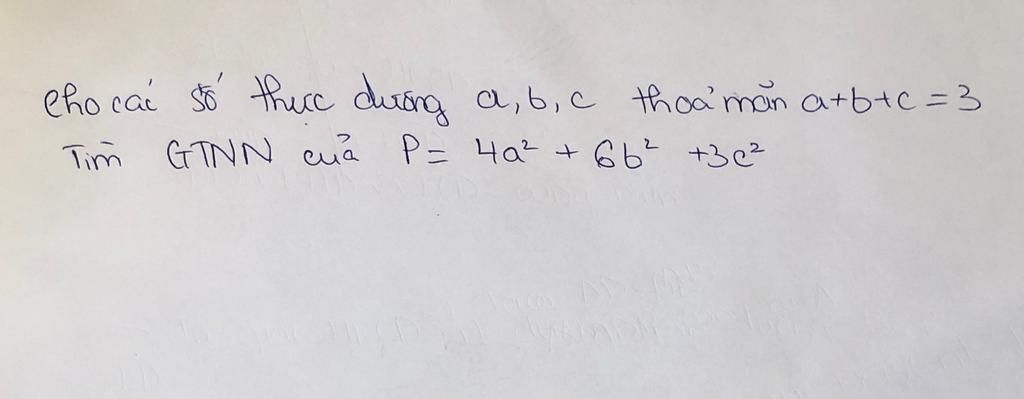 Cho các số thực dương a, b, c thoả mãn a+b+c = 3
Tìm GTNN của P = 4a² + 6b² +3c²